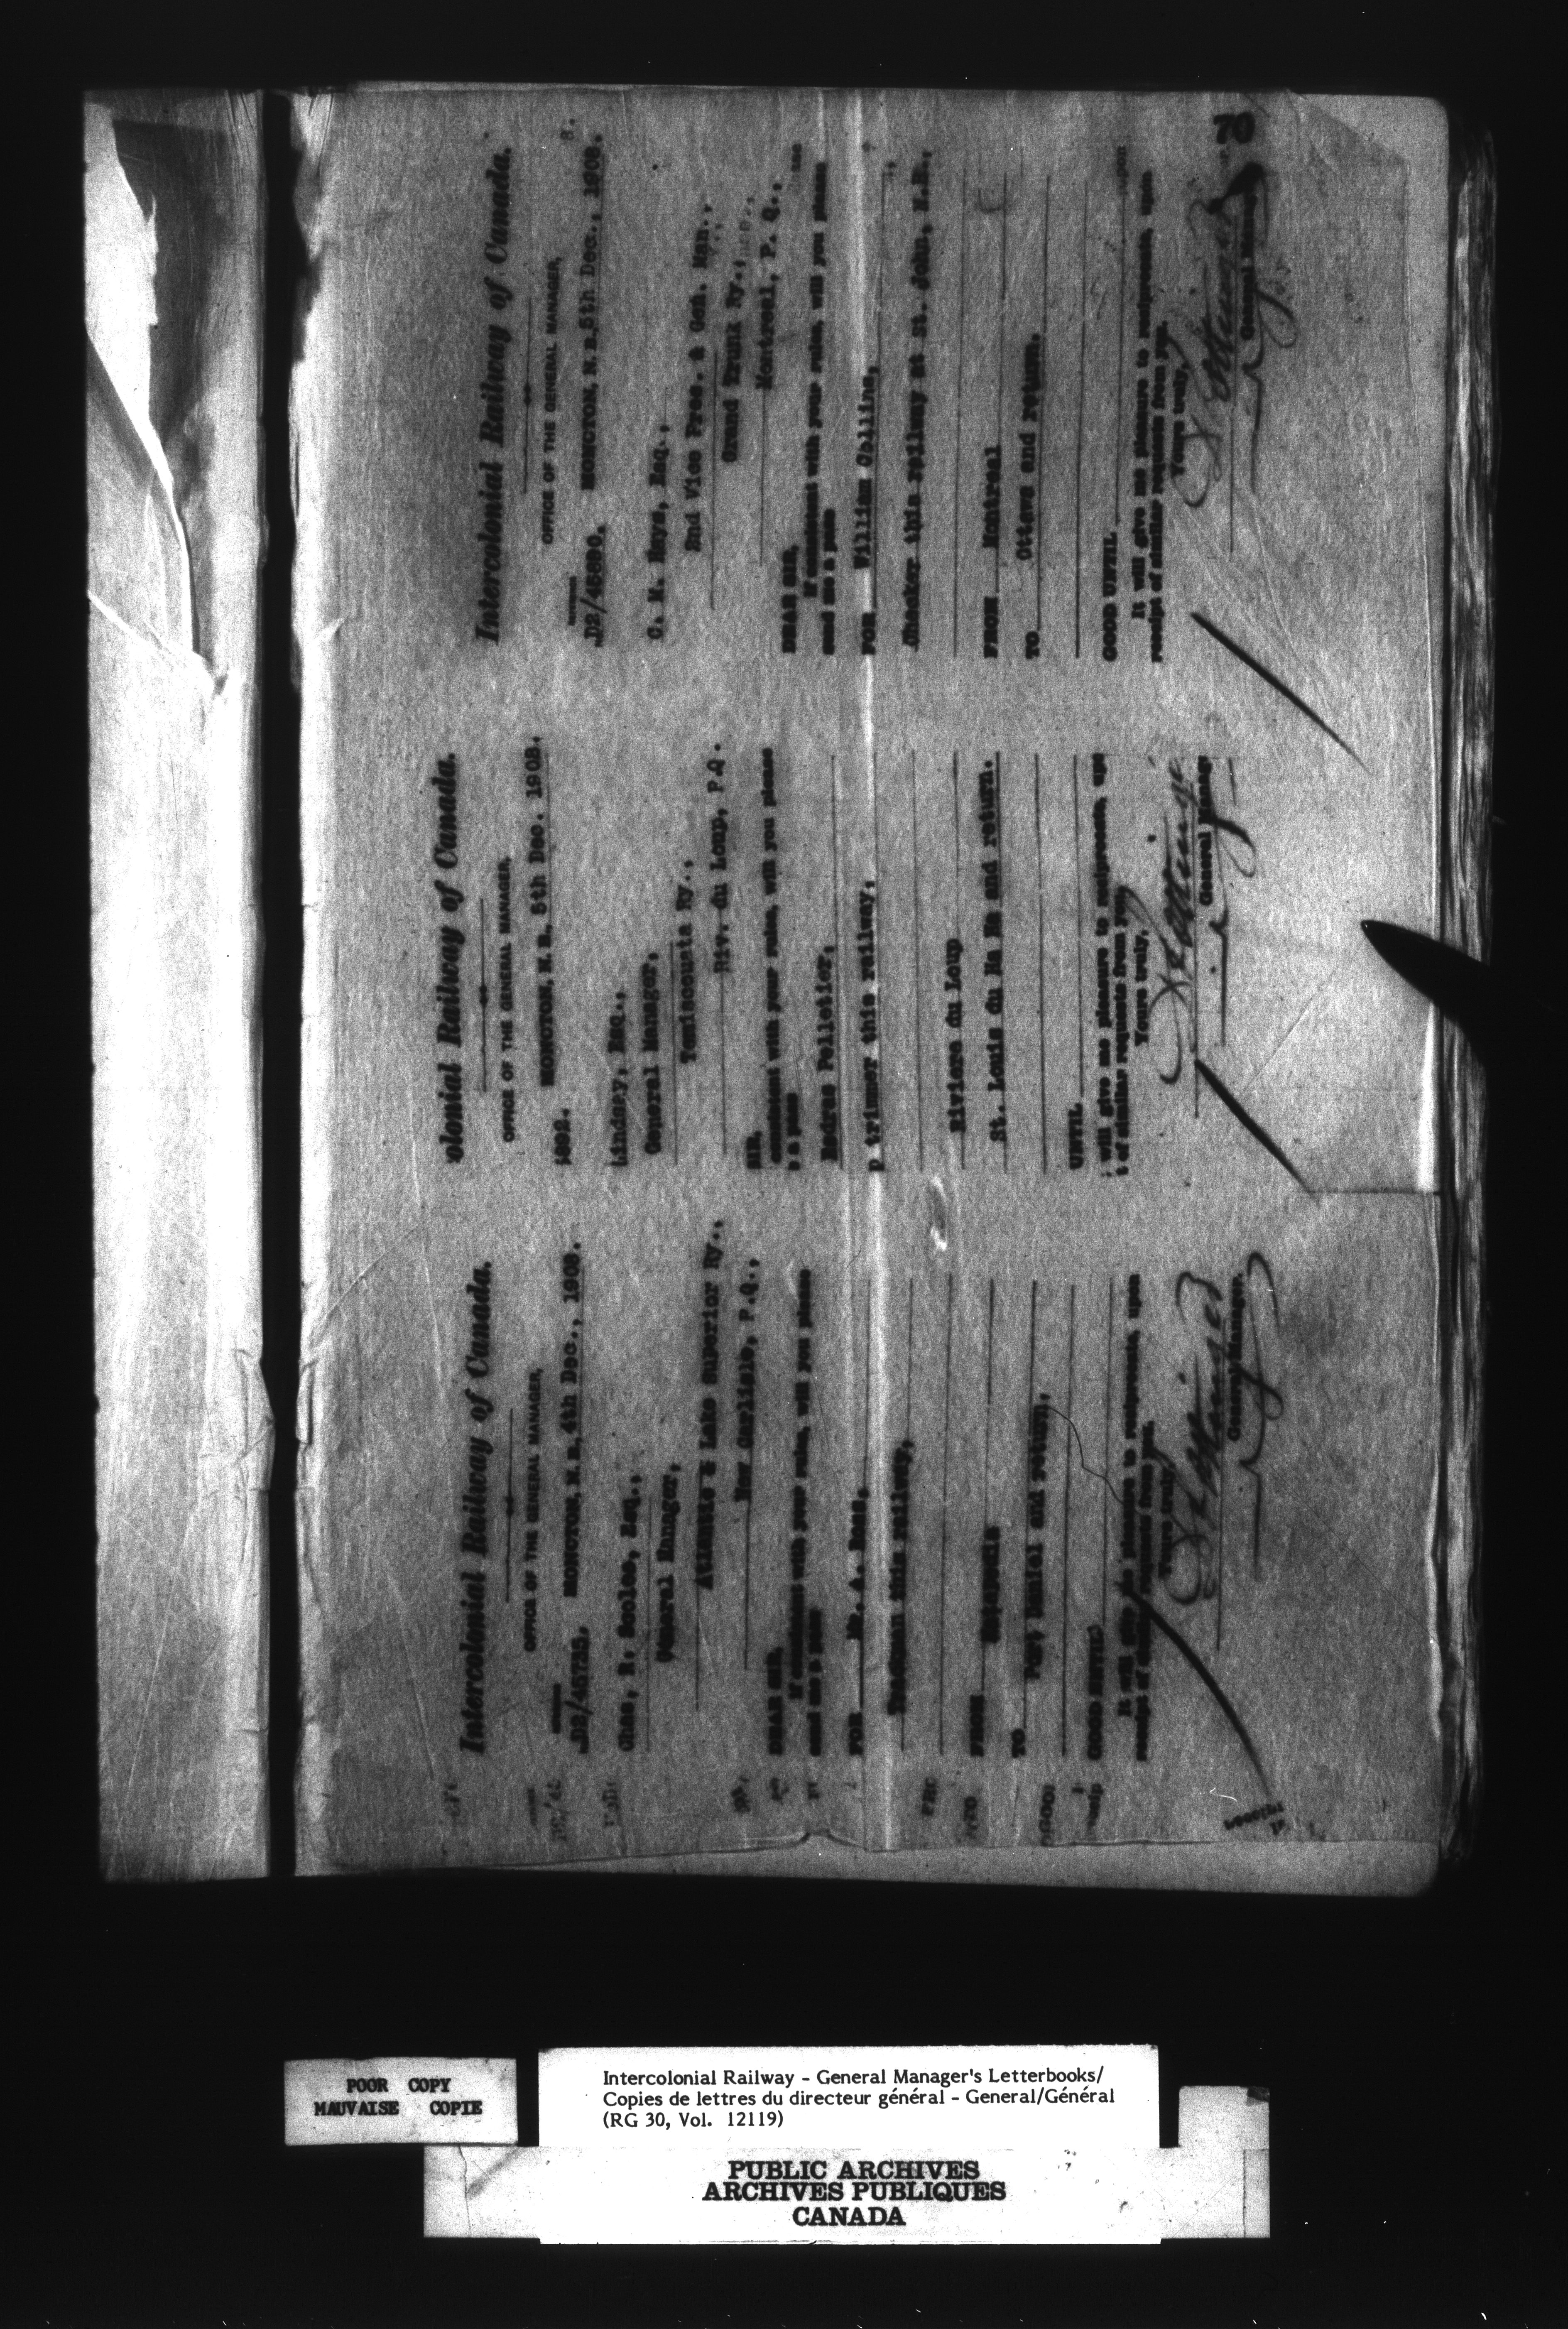 Intercolonial Railway of Canada.
OFFICE OF THE GENERAL MANAGER,
D2/45735. MONCTON, N. B. 4th Dec., 1903.
Chas. R. Scoles, Esq.,
General Manager,
Atlantic & Lake Superior Ry.,
New Carlisle, P.Q.,
DEAR SIR,
If consistent with your rules, will you please
send me a pass
FOR A. Ross,
this railway,
FROM
TO Port Daniel and return,
GOOD UNTIL
It will give me pleasure to reciprocate, upon
receipt of similar requests from you.
Yours truly,
General Manager.
olonial Railway of Canada.
OFFICE OF THE GENERAL MANAGER,
MONCTON, N. B. 5th Dec. 1903.
Lindsay, Esq.,
General Manager,
Temiscouata Ry.,
Riv. du Loup, P.Q.
SIR,
consistent with your rules, will you please
a pass
Pelletier,
p trimmer this railway,
Riviere du Loup
St. Louis du Ha Ha and return.
UNTIL
will give me pleasure to reciprocate, upo
t of similar requests from you.
Yours truly,
General Manag
Intercolonial Railway of Canada.
OFFICE OF THE GENERAL MANAGER,
MONCTON, N. B. 5th Dec., 1903.
C. M. Hays, Esq.,
2nd Vice Pres. & Gen. Man.,
Grand Trunk Ry.,
Montreal, P. Q.,
DEAR SIR,
If consistent with your rules, will you please
send me a pass
FOR William Collins,
Checker this railway at St. John, N.B.,
FROM Montreal
TO Ottawa and return.
GOOD UNTIL
It will give me pleasure to reciprocate, upon
receipt of similar requests from you.
Yours truly,
General Manager
70
POOR COPY
MAUVAISE COPIE
Intercolonial Railway - General Manager's Letterbooks/
Copies de lettres du directeur général - General/Général
(RG 30, Vol. 12119)
PUBLIC ARCHIVES
ARCHIVES PUBLIQUES
CANADA